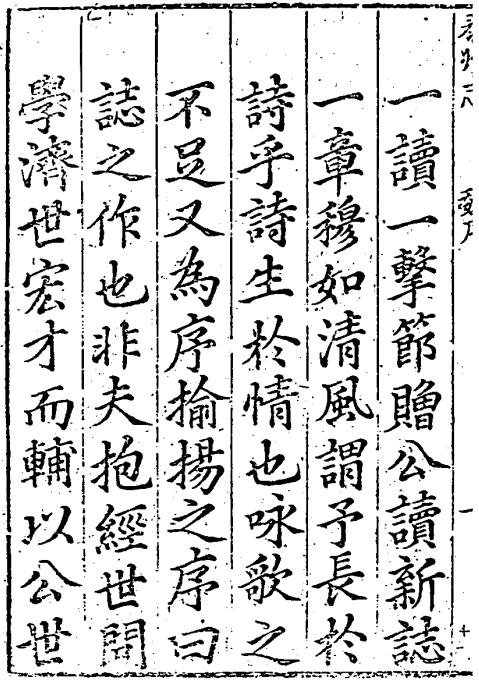 一讀一擊節贈公讀新誌
一章穆如清風謂予長於
詩乎詩生於情也咏歌之
不足又為序揄揚之序曰
誌之作也非夫抱經世問
學濟世宏才而輔以公世